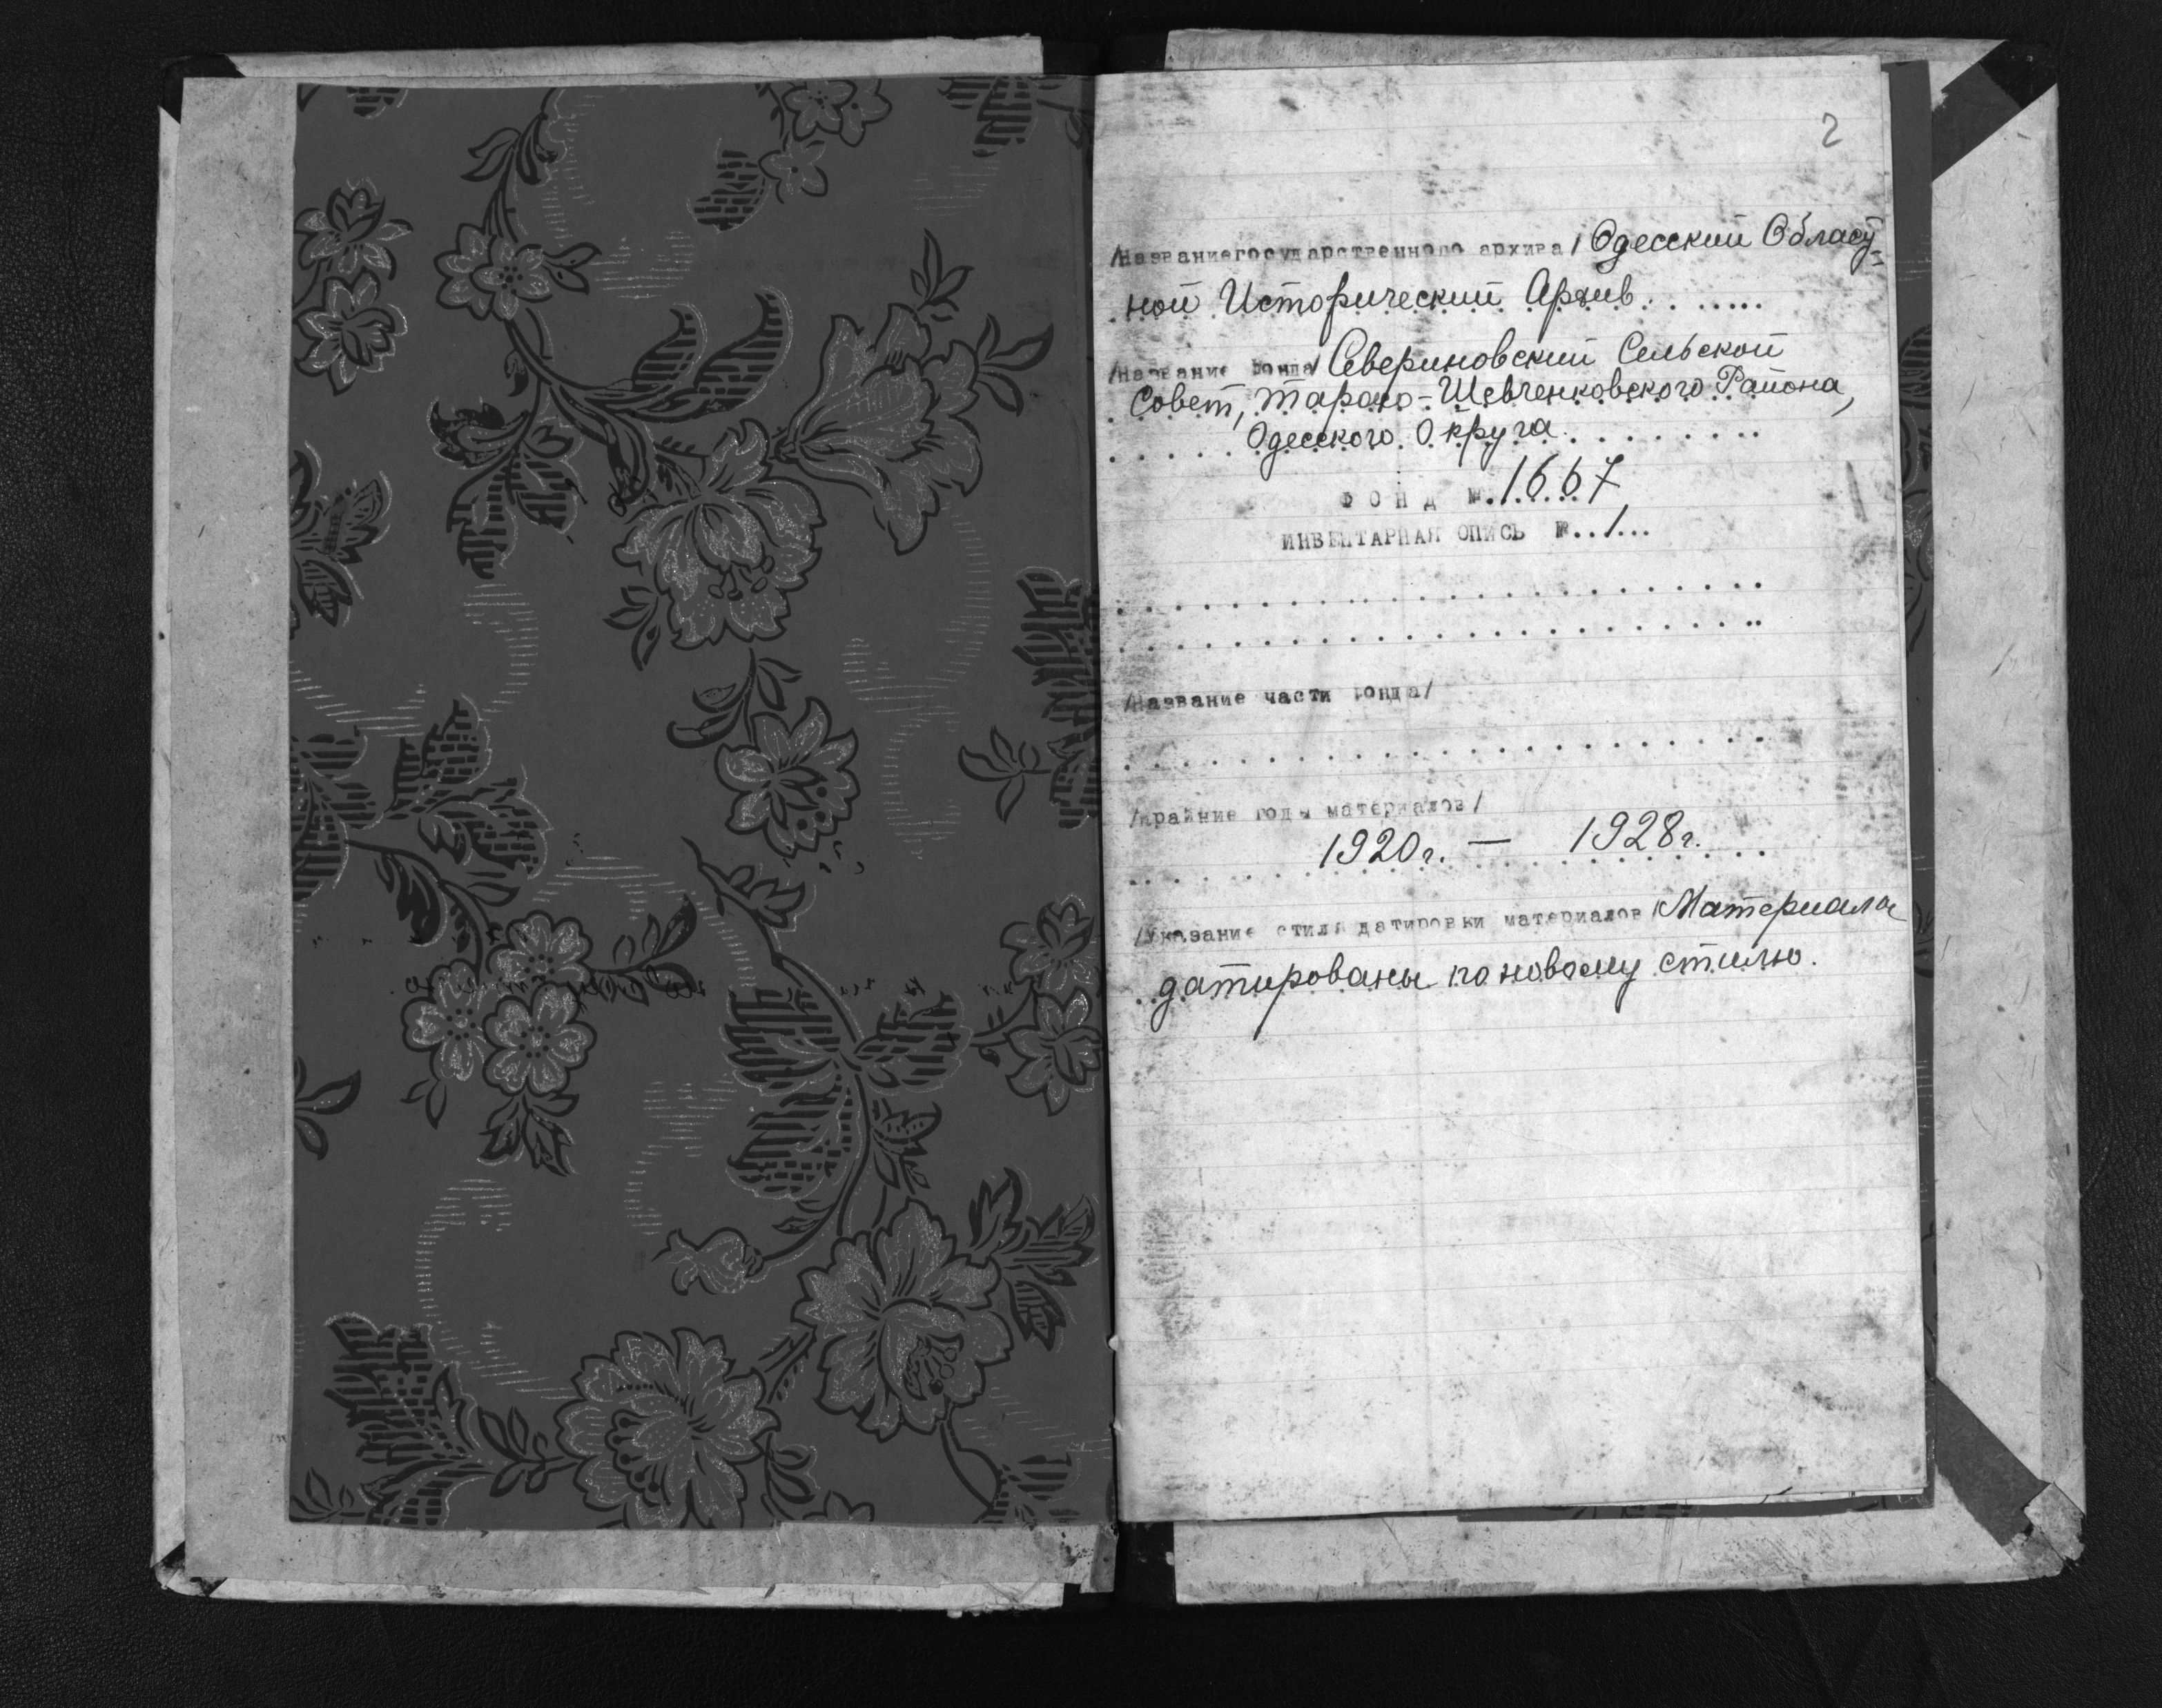 2
/Названиегосударственного архива/ Одесский Област-
ной Исторический Архив . . . . . . .
/Название фонда/ Севериновский Сельской
Совет, Тарасо-Шевченковского Района,
. . . . . Одесского Округа . . . . . . . .
ФОНД №.1667
ИНВЕНТАРНАЯ ОПИСЬ №..1...
/Название части фонда/
/Крайние годы материалов/
1920г. — 1928г.
/Указание стиля датировки материалов/ Материалы
датированы по новому стилю.